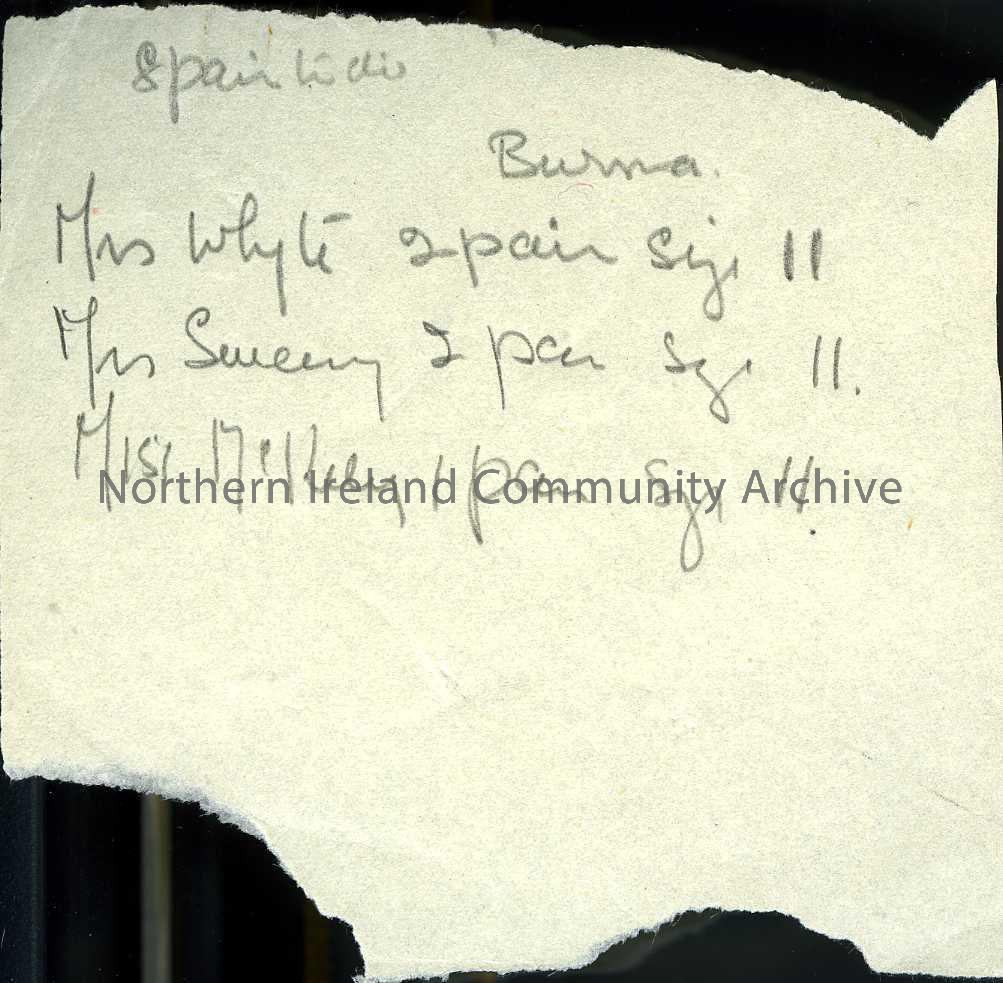 8 pair
Burma.
Mrs Whyte 2 pair size 11
Mrs Sweeny 2 pair size 11.
Miss 1 pair size 11.
Northern Ireland Community Archive